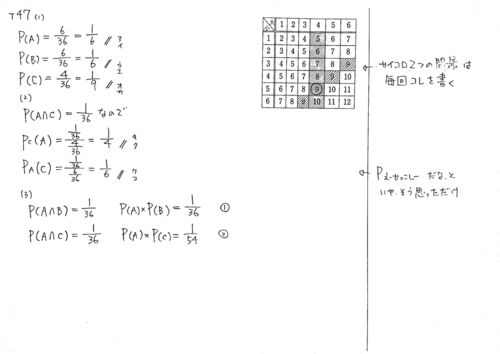 T47 (1)
P(A) = 6/36 = 1/6 // ア イ
P(B) = 6/36 = 1/6 // ウ エ
P(C) = 4/36 = 1/9 // オ カ
(2)
P(A∩C) = 1/36 なので
Pc(A) = (1/36)/(4/36) = 1/4 //
PA(C) = (1/36)/(6/36) = 1/6 //
(3)
P(A∩B) = 1/36 P(A)×P(B) = 1/36 ①
P(A∩C) = 1/36 P(A)×P(C) = 1/54 ②
1 2 3 4 5 6
1 2 3 4 5 6 7
2 3 4 5 6 7 8
3 4 5 6 7 8 9
4 5 6 7 8 9 10
5 6 7 8 9 10 11
6 7 8 9 10 11 12
サイコロ2つの問題は
毎回コレを書く
だな、と
いや、そう思っただけ